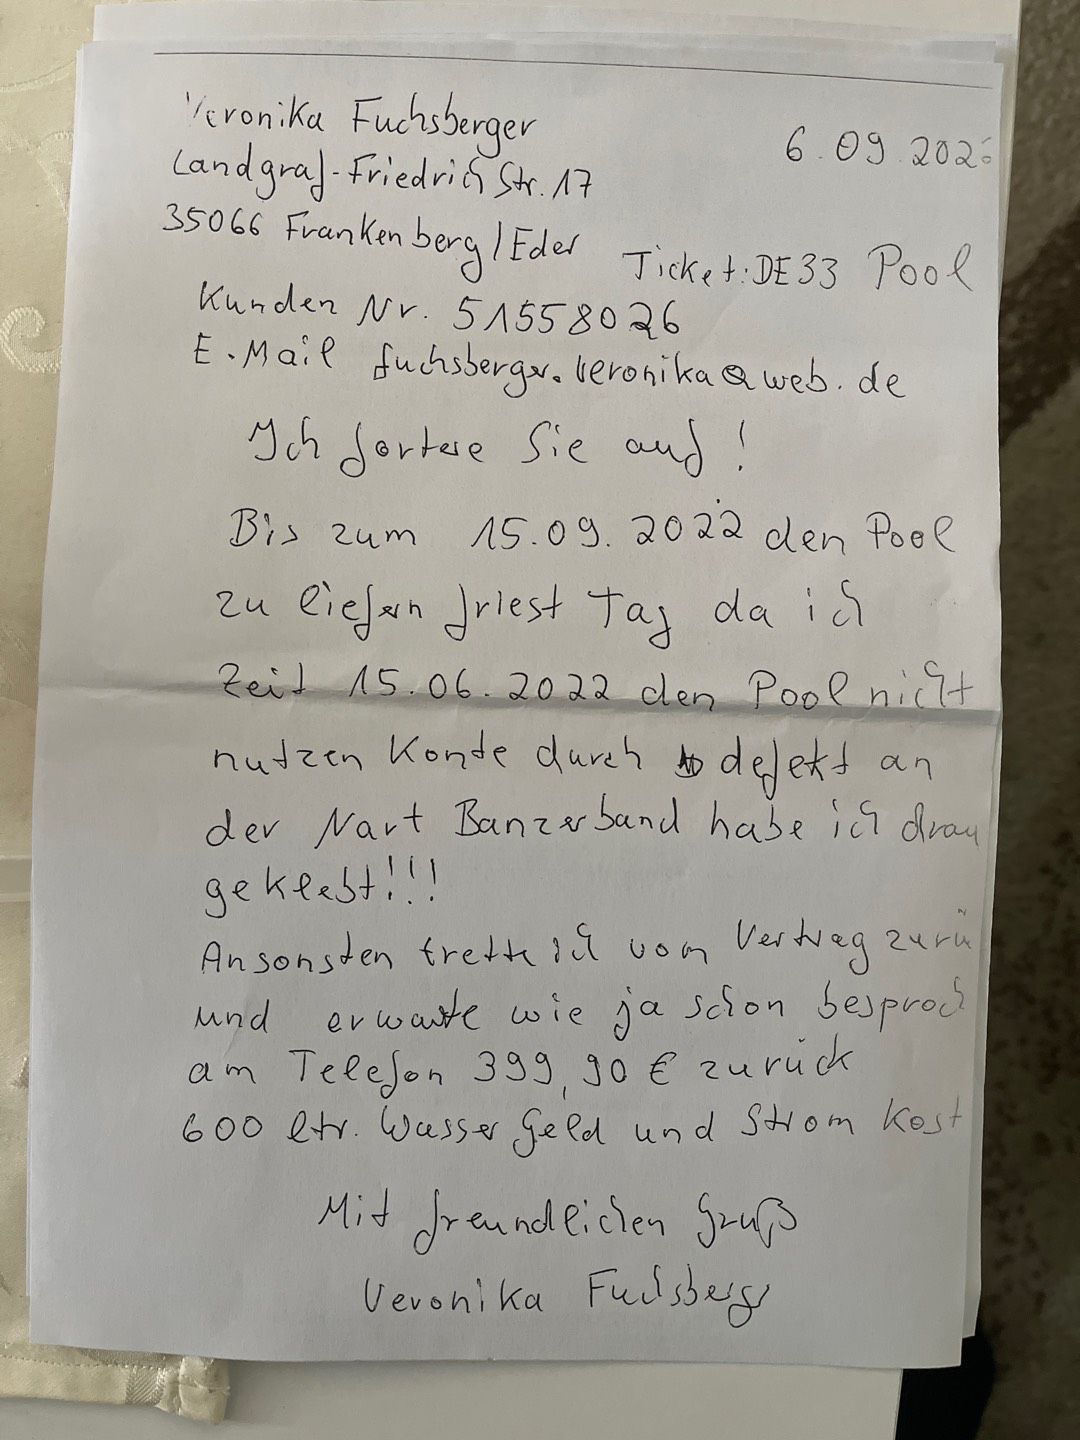 Veronika Fuchsberger
6.09.202
Landgraf-Friedrich Str. 17
35066 Frankenberg/Eder
Ticket: DE33 Pool
Kunden Nr. 51558026
E-Mail fuchsberger.veronika@web.de
Ich fortere Sie auf!
Bis zum 15.09.2022 den Pool
zu liefern friest Tag da ich
Zeit 15.06.2022 den Pool nicht
nutzen Konte durch defekt an
der Nart Banzerband habe ich drau
geklebt!!!
Ansonsten trette ich vom Vertrag zurü
und erwarte wie ja schon besproch
am Telefon 399,90 € zurück
600 ltr. Wasser Geld und Strom Kost
Mit freundlichen Gruß
Veronika Fuchsberger